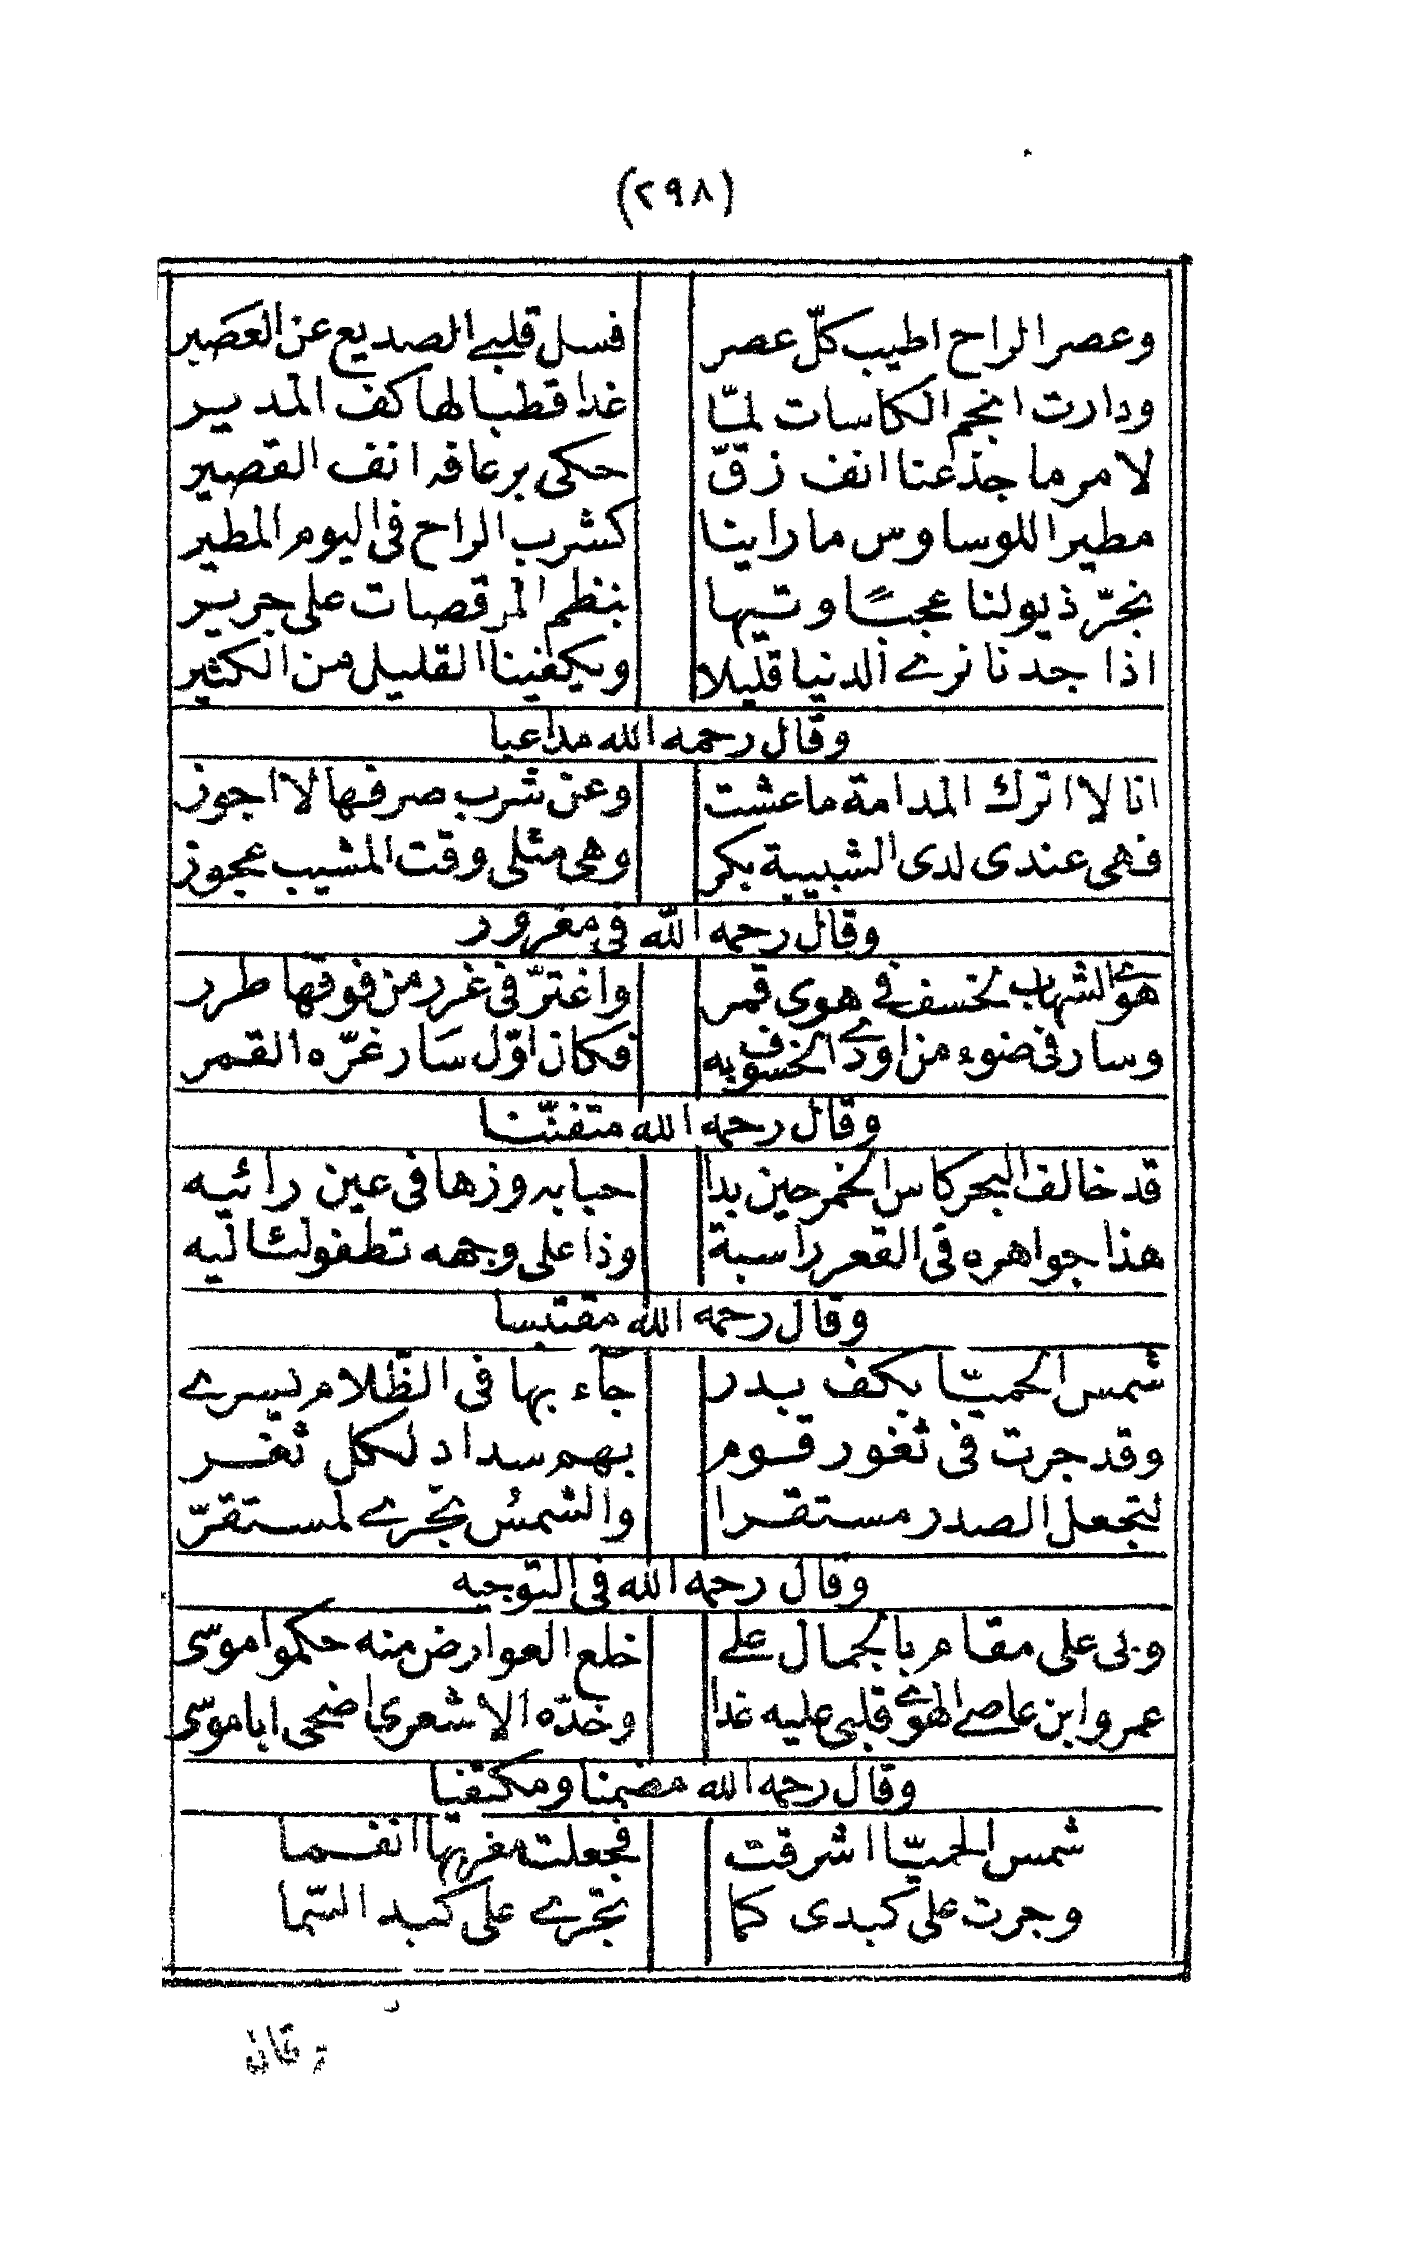 (٢٩٨)
وعصر الراح اطيب كلّ عصر فسل قلبي الصديع عن العصير
ودارت انجم الكاسات لمّا غدا قطبا لها كف المدير
لامر ما جذعنا انف زقّ حكى برعافه انف القصير
مطير اللوساوس ما راينا كشرب الراح فى اليوم المطير
نجرّ ذيولنا عجبًا وتيها بنظم المرقصات على جرير
اذا جدنا نرے الدنيا قليلا ويكفينا القليل من الكثير
وقال رحمه الله مداعبا
انا لا اترك المدامة ما عشت وعن شرب صرفها لا اجوز
فهى عندى لدى الشبيبة بكر وهى مثلى وقت المشيب عجوز
وقال رحمه الله فى مغرور
هوے الشهاب لخسف فے هوى قمر واغترّ فى غرر من فوقها طرر
وسار فى ضوء من اودے الخسوف به فكان اوّل سار غرّه القمر
وقال رحمه الله متفنّنا
قد خالف البحر كاس الخمر حين بدا حبابه وزها فى عين رائيه
هذا جواهره فى القعر راسبة وذا على وجهه تطفو لئاليه
وقال رحمه الله مقتبسا
شمس الحميّا بكف بدر جآء بها فى الظّلام يسرے
وقد جرت فى ثغور قوم بهم سداد لكل ثغر
لتجعل الصدر مستقرا والشمسُ تجرے لمستقرّ
وقال رحمه الله فى التوجيه
وبى على مقام بالجمال علے خلع العوارض منه حكموا موسى
عمرو ابن عاصے الهوے قلبى عليه غدا وخدّه الاشعرى اضحى ابا موسى
وقال رحمه الله مضمنا ومكتفيا
شمس الحميّا اشرقت فجعلت مغربها انفما
وجرت على كبدى كما تجّرے على كبد السّما